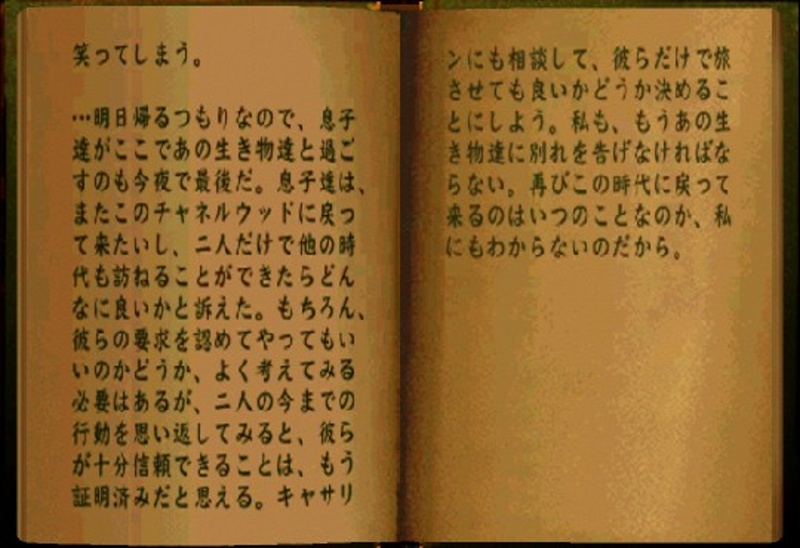 笑ってしまう。
…明日帰るつもりなので、息子
達がここであの生き物達と過ご
すのも今夜で最後だ。息子達は、
またこのチャネルウッドに戻っ
て来たいし、二人だけで他の時
代も訪ねることができたらどん
なに良いかと訴えた。もちろん、
彼らの要求を認めてやってもい
いのかどうか、よく考えてみる
必要はあるが、二人の今までの
行動を思い返してみると、彼ら
が十分信頼できることは、もう
証明済みだと思える。キャサリ
ンにも相談して、彼らだけで旅
させても良いかどうか決めるこ
とにしよう。私も、もうあの生
き物達に別れを告げなければな
らない。再びこの時代に戻って
来るのはいつのことなのか、私
にもわからないのだから。